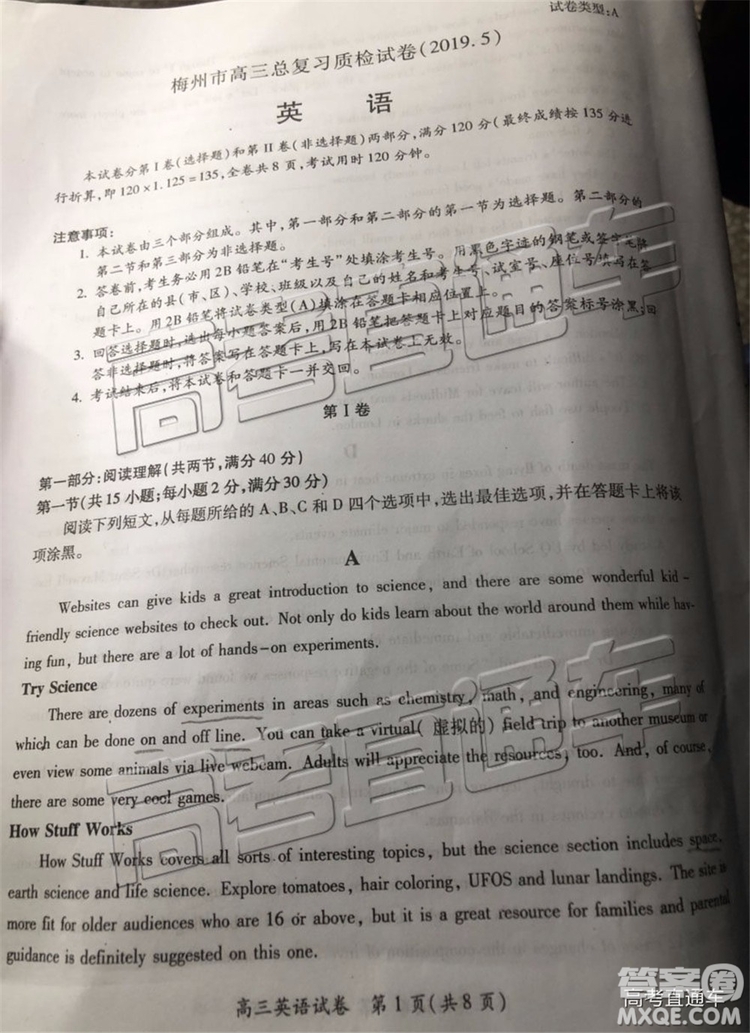 试卷类型:A
梅州市高三总复习质检试卷(2019.5)
英 语
本试卷分第Ⅰ卷(选择题)和第Ⅱ卷(非选择题)两部分,满分120分(最终成绩按135分进
行折算,即120×1.125=135,全卷共8页,考试用时120分钟。
注意事项:
1. 本试卷由三个部分组成。其中,第一部分和第二部分的第一节为选择题。第二部分的
第二节和第三部分为非选择题。
2. 答卷前,考生务必用2B铅笔在“考生号”处填涂考生号。用黑色字迹的钢笔或签字笔将
自己所在的县(市、区)、学校、班级以及自己的姓名和考生号、试室号、座位号填写在答
题卡上。用2B铅笔将试卷类型(A)填涂在答题卡相应位置上。
3. 回答选择题时,选出每小题答案后,用2B铅笔把答题卡上对应题目的答案标号涂黑;回
答非选择题时,将答案写在答题卡上,写在本试卷上无效。
4. 考试结束后,将本试卷和答题卡一并交回。
第Ⅰ卷
第一部分:阅读理解(共两节,满分40分)
第一节(共15小题;每小题2分,满分30分)
阅读下列短文,从每题所给的A、B、C和D四个选项中,选出最佳选项,并在答题卡上将该
项涂黑。
A
Websites can give kids a great introduction to science, and there are some wonderful kid-
friendly science websites to check out. Not only do kids learn about the world around them while hav-
ing fun, but there are a lot of hands-on experiments.
Try Science
There are dozens of experiments in areas such as chemistry, math, and engineering, many of
which can be done on and off line. You can take a virtual( 虚拟的) field trip to another museum or
even view some animals via live webcam. Adults will appreciate the resources, too. And, of course,
there are some very cool games.
How Stuff Works
How Stuff Works covers all sorts of interesting topics, but the science section includes space,
earth science and life science. Explore tomatoes, hair coloring, UFOS and lunar landings. The site is
more fit for older audiences who are 16 or above, but it is a great resource for families and parental
guidance is definitely suggested on this one.
高三英语试卷 第1页(共8页)
高考直通车
高考直通车
答案圈
高考直通车
MXQE.COM